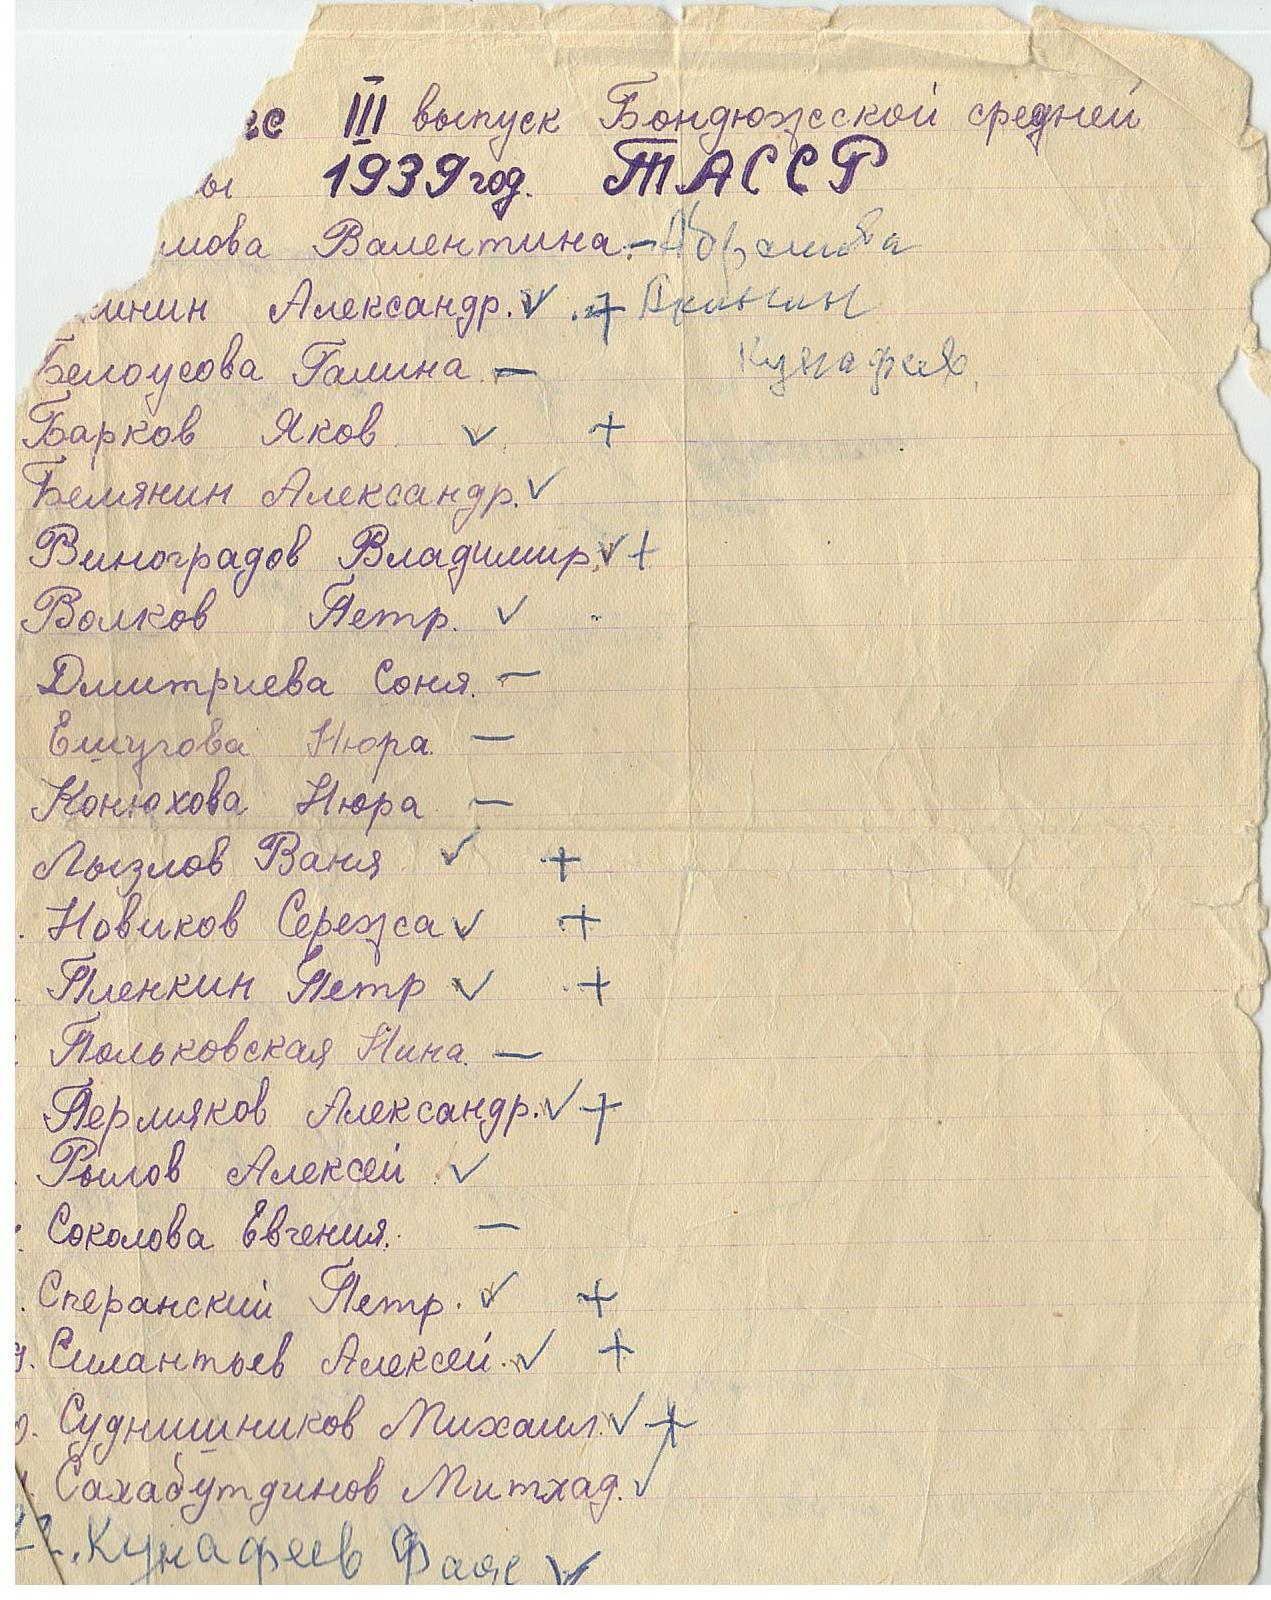 сс III выпуск Бондюжской средней
ы 1939 год. ТАССР
мова Валентина. — Абрамова
минин Александр. ✓ + Акинин
Белоусова Галина — Кунафеев
Барков Яков ✓ +
Белянин Александр. ✓
Виноградов Владимир. ✓ +
Волков Петр. ✓
Дмитриева Соня. —
Ешугова Нюра. —
Конюхова Нюра —
Лызлов Ваня ✓ +
. Новиков Сережа ✓ +
Пленкин Петр ✓ +
Польковская Нина. —
Пермяков Александр. ✓ +
Рылов Алексей ✓
Соколова Евгения. —
. Сперанский Петр. ✓ +
9. Силантьев Алексей. ✓ +
0. Суднишников Михаил. ✓ +
Сахабутдинов Митхад. ✓
22. Кунафеев Фаяс ✓